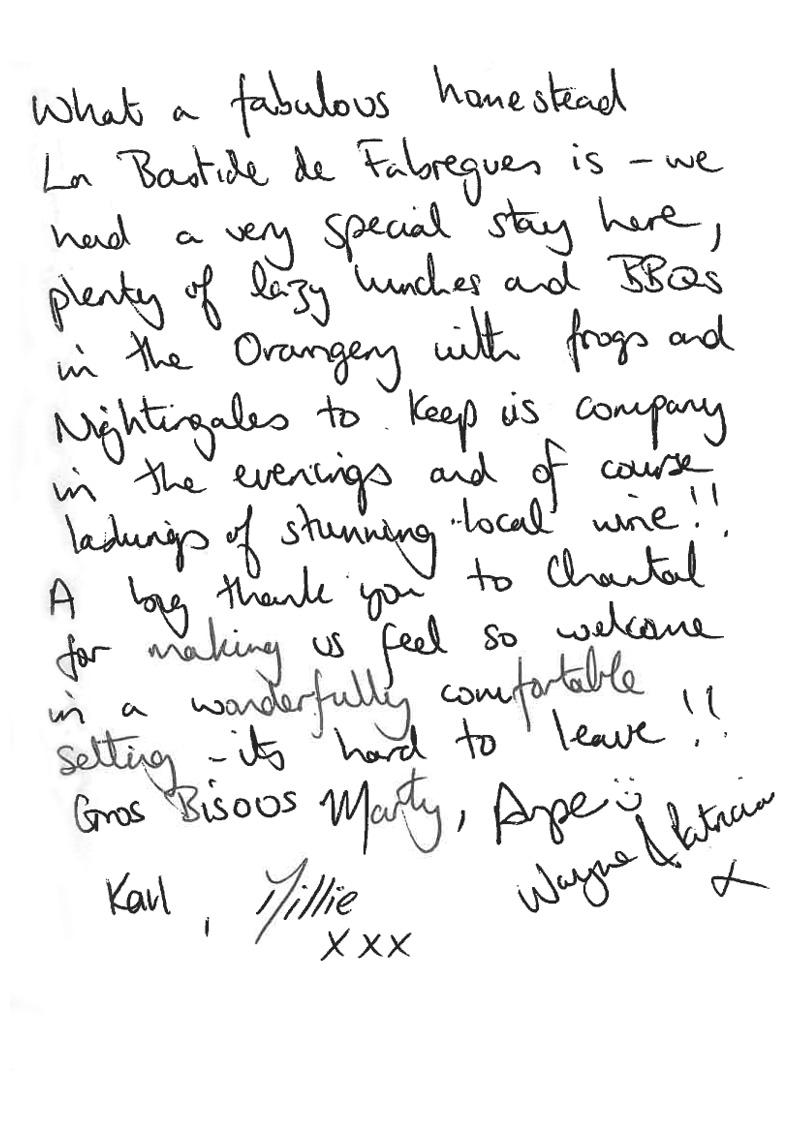 What a fabulous homestead
La Bastide de Fabregues is - we
had a very special stay here,
plenty of lazy lunches and BBQs
in the Orangery with frogs and
Nightingales to keep us company
in the evenings and of course
ladungs of stunning local wine!!
A big thank you to Chantal
for making us feel so welcome
in a wonderfully comfortable
setting - its hard to leave!!
Gros Bisous Marty,
Wayne & Patricia x
Karl, Millie
xxx